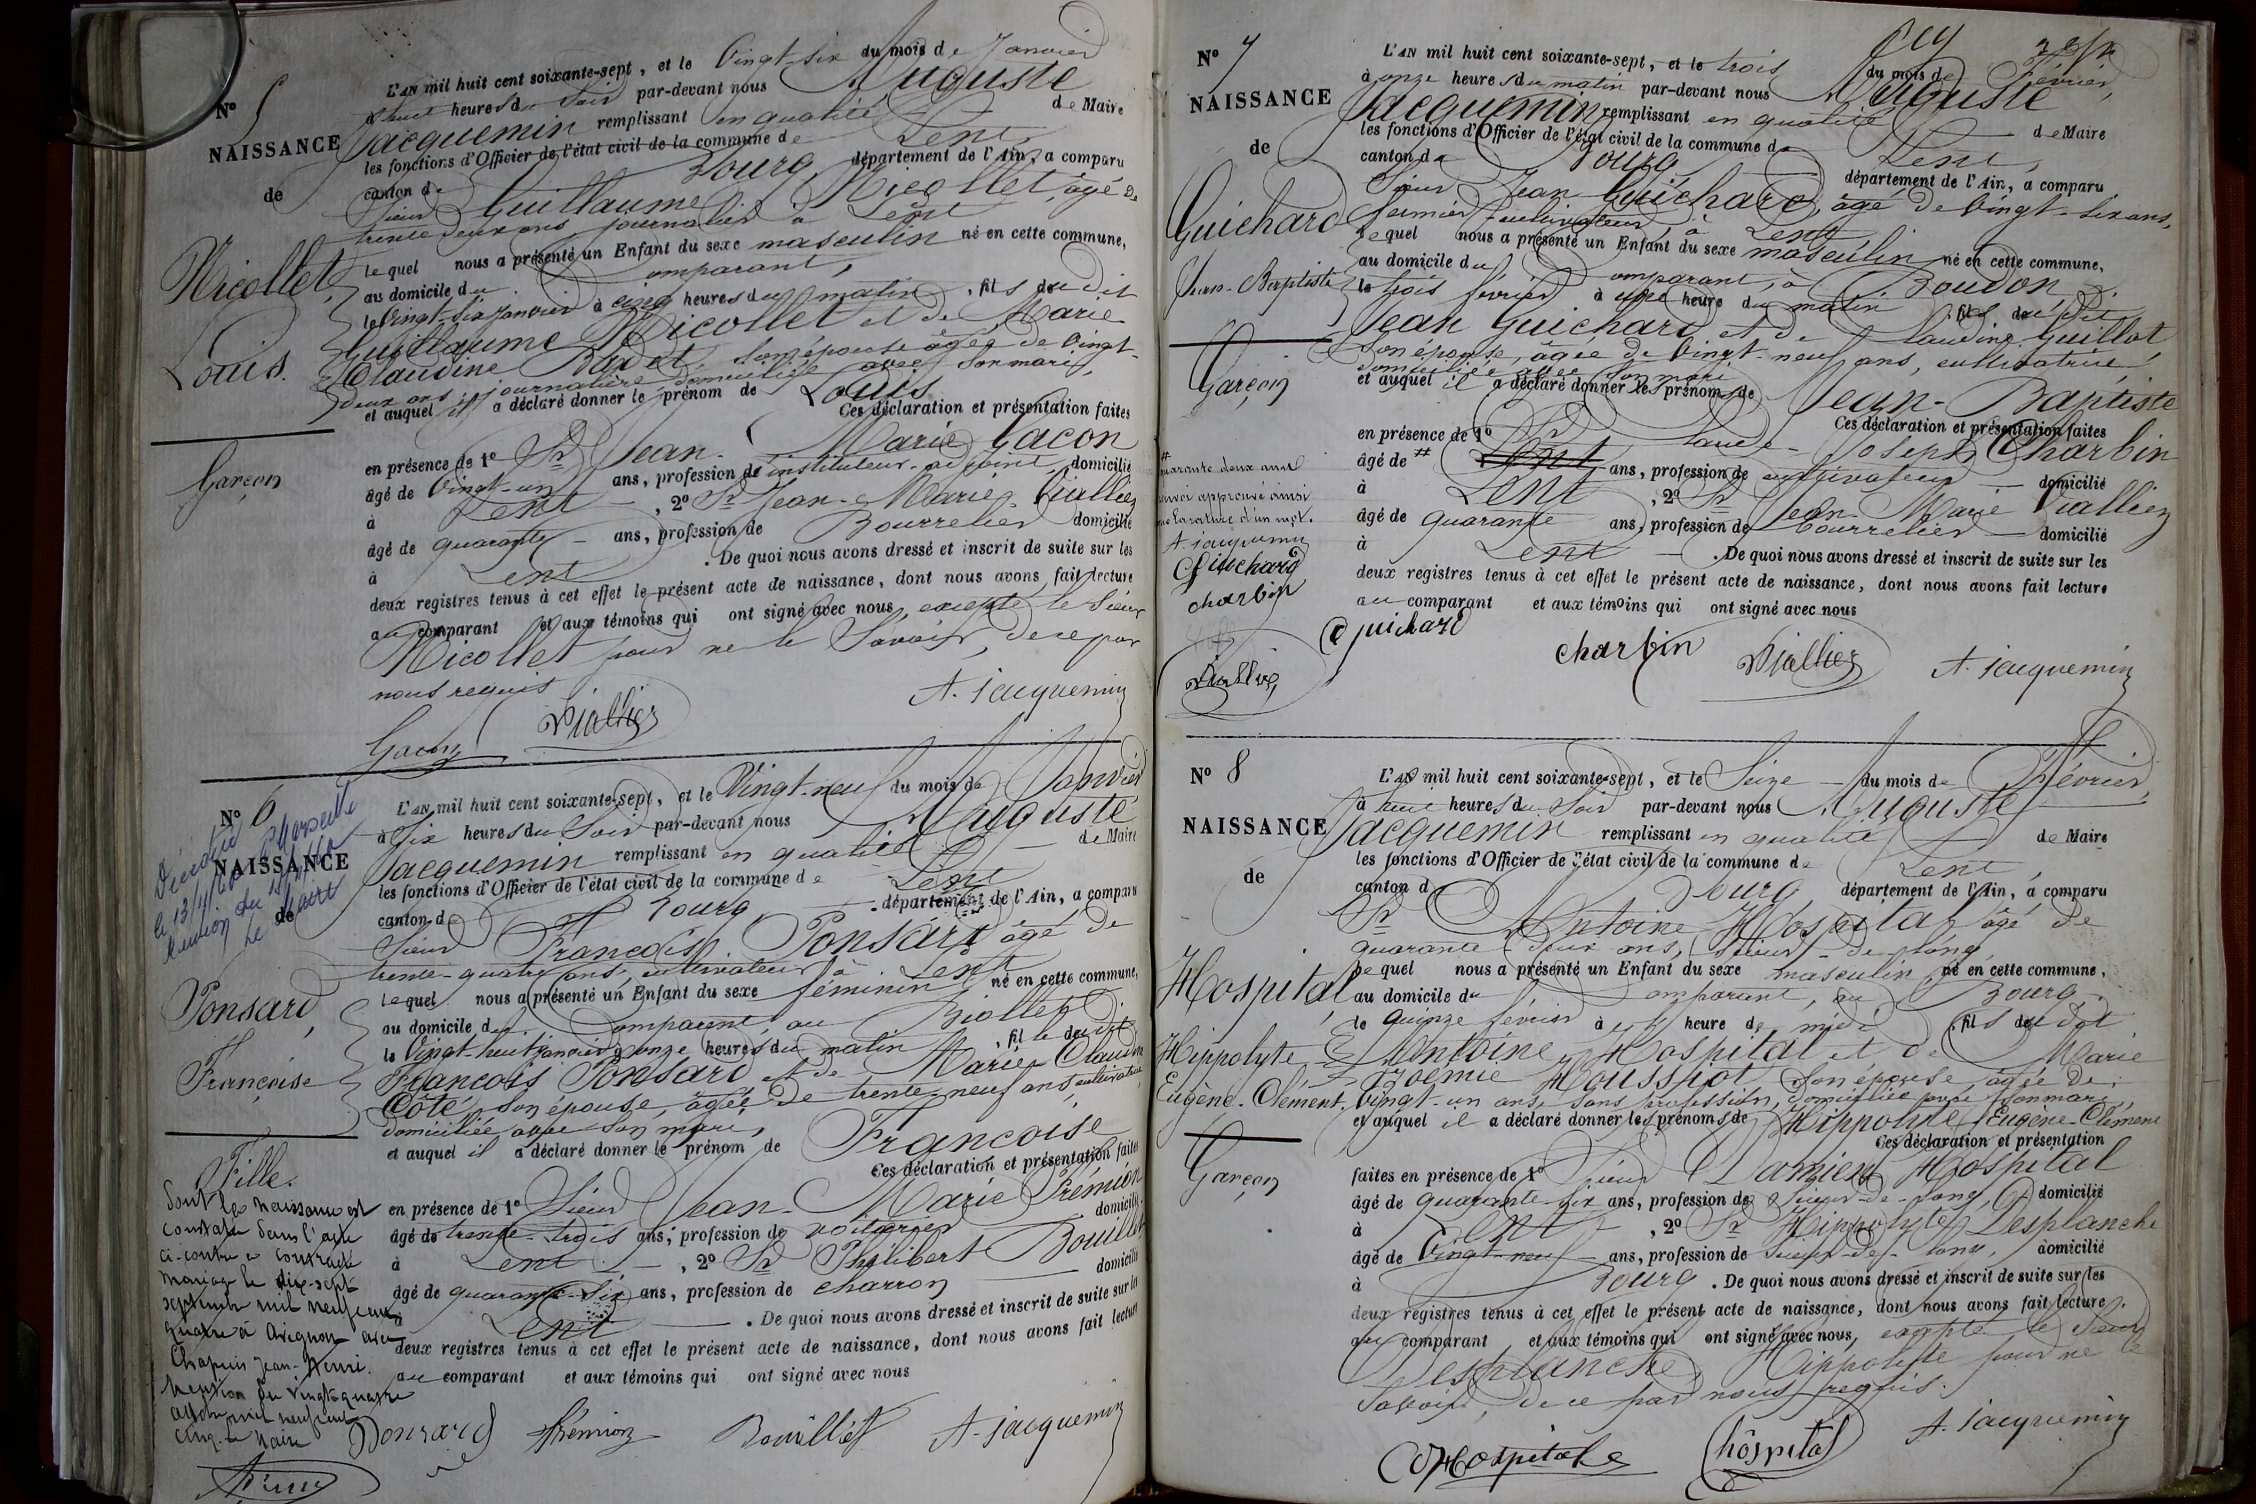 N° 5
NAISSANCE
de
Nicollet,
Louis.
Garçon
L'AN mil huit cent soixante-sept, et le Vingt-six du mois de Janvier
à huit heures du Soir par-devant nous Auguste
Jacquemin remplissant en qualité de Maire
les fonctions d'Officier de l'état civil de la commune de Lent
canton de Bourg, département de l'Ain, a comparu
Sieur Guillaume Nicollet, âgé de
trente deux ans, journalier à Lent
lequel nous a présenté un Enfant du sexe masculin né en cette commune,
au domicile du Comparant,
le Vingt-six janvier à cinq heures du matin, fils du dit
Guillaume Nicollet et de Marie
Claudine Badet, son épouse âgée de Vingt-
deux ans, journalière, domiciliée avec Son mari,
et auquel il a déclaré donner le prénom de Louis
Ces déclaration et présentation faites
en présence de 1° Sr Jean-Marie Gacon
âgé de Vingt-un ans, profession de instituteur-adjoint domicilié
à Lent, 2° Sr Jean-Marie Viallier
âgé de quarante ans, profession de Bourrelier domicilié
à Lent. De quoi nous avons dressé et inscrit de suite sur les
deux registres tenus à cet effet le présent acte de naissance, dont nous avons fait lecture
au comparant et aux témoins qui ont signé avec nous, excepté le Sieur
Nicollet pour ne le Savoir, de ce par
nous requis
Gacon Viallier A. Jacquemin
N° 6
NAISSANCE
de
Ponsard,
Françoise
Fille.
Décédée
Marseille
le 13/4/60
Mention du
Le Maire
L'AN mil huit cent soixante-sept, et le Vingt-neuf du mois de Janvier
à Six heures du Soir par-devant nous Auguste
Jacquemin remplissant en qualité de Maire
les fonctions d'Officier de l'état civil de la commune de Lent
canton de Bourg, département de l'Ain, a comparu
Sieur François Ponsard âgé de
trente-quatre ans, cultivateur à Lent
lequel nous a présenté un Enfant du sexe féminin né en cette commune,
au domicile du Comparant, au Biollet
le Vingt-huit janvier à onze heures du matin, fille du dit
François Ponsard et de Marie Claudine
Côte, son épouse, âgée de trente-neuf ans, cultivatrice
domiciliée avec Son mari,
et auquel il a déclaré donner le prénom de Françoise
Ces déclaration et présentation faites
en présence de 1° Sieur Jean-Marie Prémion
âgé de trente-trois ans, profession de voiturier domicilié
à Lent, 2° Sr Philibert Bouillet
âgé de quarante-Six ans, profession de charron domicilié
à Lent. De quoi nous avons dressé et inscrit de suite sur les
deux registres tenus à cet effet le présent acte de naissance, dont nous avons fait lecture
au comparant et aux témoins qui ont signé avec nous
Ponsard Prémion Bouillet A. Jacquemin
dont la naissance est
constatée dans l'acte
ci-contre a contracté
mariage le dix-sept
septembre mil neuf cent
quatre à Avignon avec
Chapuis Jean-Henri.
Mention du Vingt-quatre
mil neuf cent
cinq. Le Maire
N° 7
NAISSANCE
de
Guichard
Jean-Baptiste
Garçon
# quarante deux ans
renvoi approuvé ainsi
que la rature d'un mot.
A. Jacquemin
Guichard
charbin
Viallier
L'AN mil huit cent soixante-sept, et le trois du mois de Février,
à onze heures du matin par-devant nous Auguste
Jacquemin remplissant en qualité de Maire
les fonctions d'Officier de l'état civil de la commune de Lent,
canton de Bourg département de l'Ain, a comparu
Sieur Jean Guichard, âgé de Vingt-six ans,
fermier cultivateur, à Lent
lequel nous a présenté un Enfant du sexe masculin né en cette commune,
au domicile du Comparant, à Boudon
le trois février à une heure du matin fils du dit
Jean Guichard et de Claudine Guillot,
Son épouse, âgée de Vingt-neuf ans, cultivatrice,
domiciliée avec Son mari
et auquel il a déclaré donner les prénoms de Jean-Baptiste
Ces déclaration et présentation faites
en présence de 1° Sr Claude-Joseph Charbin
âgé de # Lent ans, profession de cultivateur domicilié
à Lent, 2° Sr Jean-Marie Viallier
âgé de quarante ans, profession de bourrelier domicilié
à Lent. De quoi nous avons dressé et inscrit de suite sur les
deux registres tenus à cet effet le présent acte de naissance, dont nous avons fait lecture
au comparant et aux témoins qui ont signé avec nous
Guichard charbin Viallier A. Jacquemin
N° 8
NAISSANCE
de
Hospital,
Hippolyte
Eugène-Clément.
Garçon
L'AN mil huit cent soixante-sept, et le Seize du mois de Février,
à huit heures du Soir par-devant nous Auguste
Jacquemin remplissant en qualité de Maire
les fonctions d'Officier de l'état civil de la commune de Lent,
canton d Bourg, département de l'Ain, a comparu
Sr Antoine Hospital âgé de
quarante deux ans, Scieur-de-long,
lequel nous a présenté un Enfant du sexe masculin, né en cette commune,
au domicile du Comparant, au Bourg
le quinze février à heure de midi, fils du dit
Antoine Hospital et de Marie
Noémie Moussiot, Son épouse, âgée de
Vingt-un ans, sans profession, domiciliée avec son mari
et auquel il a déclaré donner les prénoms de Hippolyte Eugène-Clément
Ces déclaration et présentation
faites en présence de 1° Sieur Damien Hospital
âgé de quarante-six ans, profession de Scieur-de-long, domicilié
à Lent, 2° Sr Hippolyte Desplanche
âgé de Vingt-neuf ans, profession de Scieur-de-long, domicilié
à Bourg. De quoi nous avons dressé et inscrit de suite sur les
deux registres tenus à cet effet le présent acte de naissance, dont nous avons fait lecture
au comparant et aux témoins qui ont signé avec nous, excepté le Sieur
Desplanche Hippolyte pour ne le
Savoir, de ce par nous requis.
Hospital hôspital A. Jacquemin